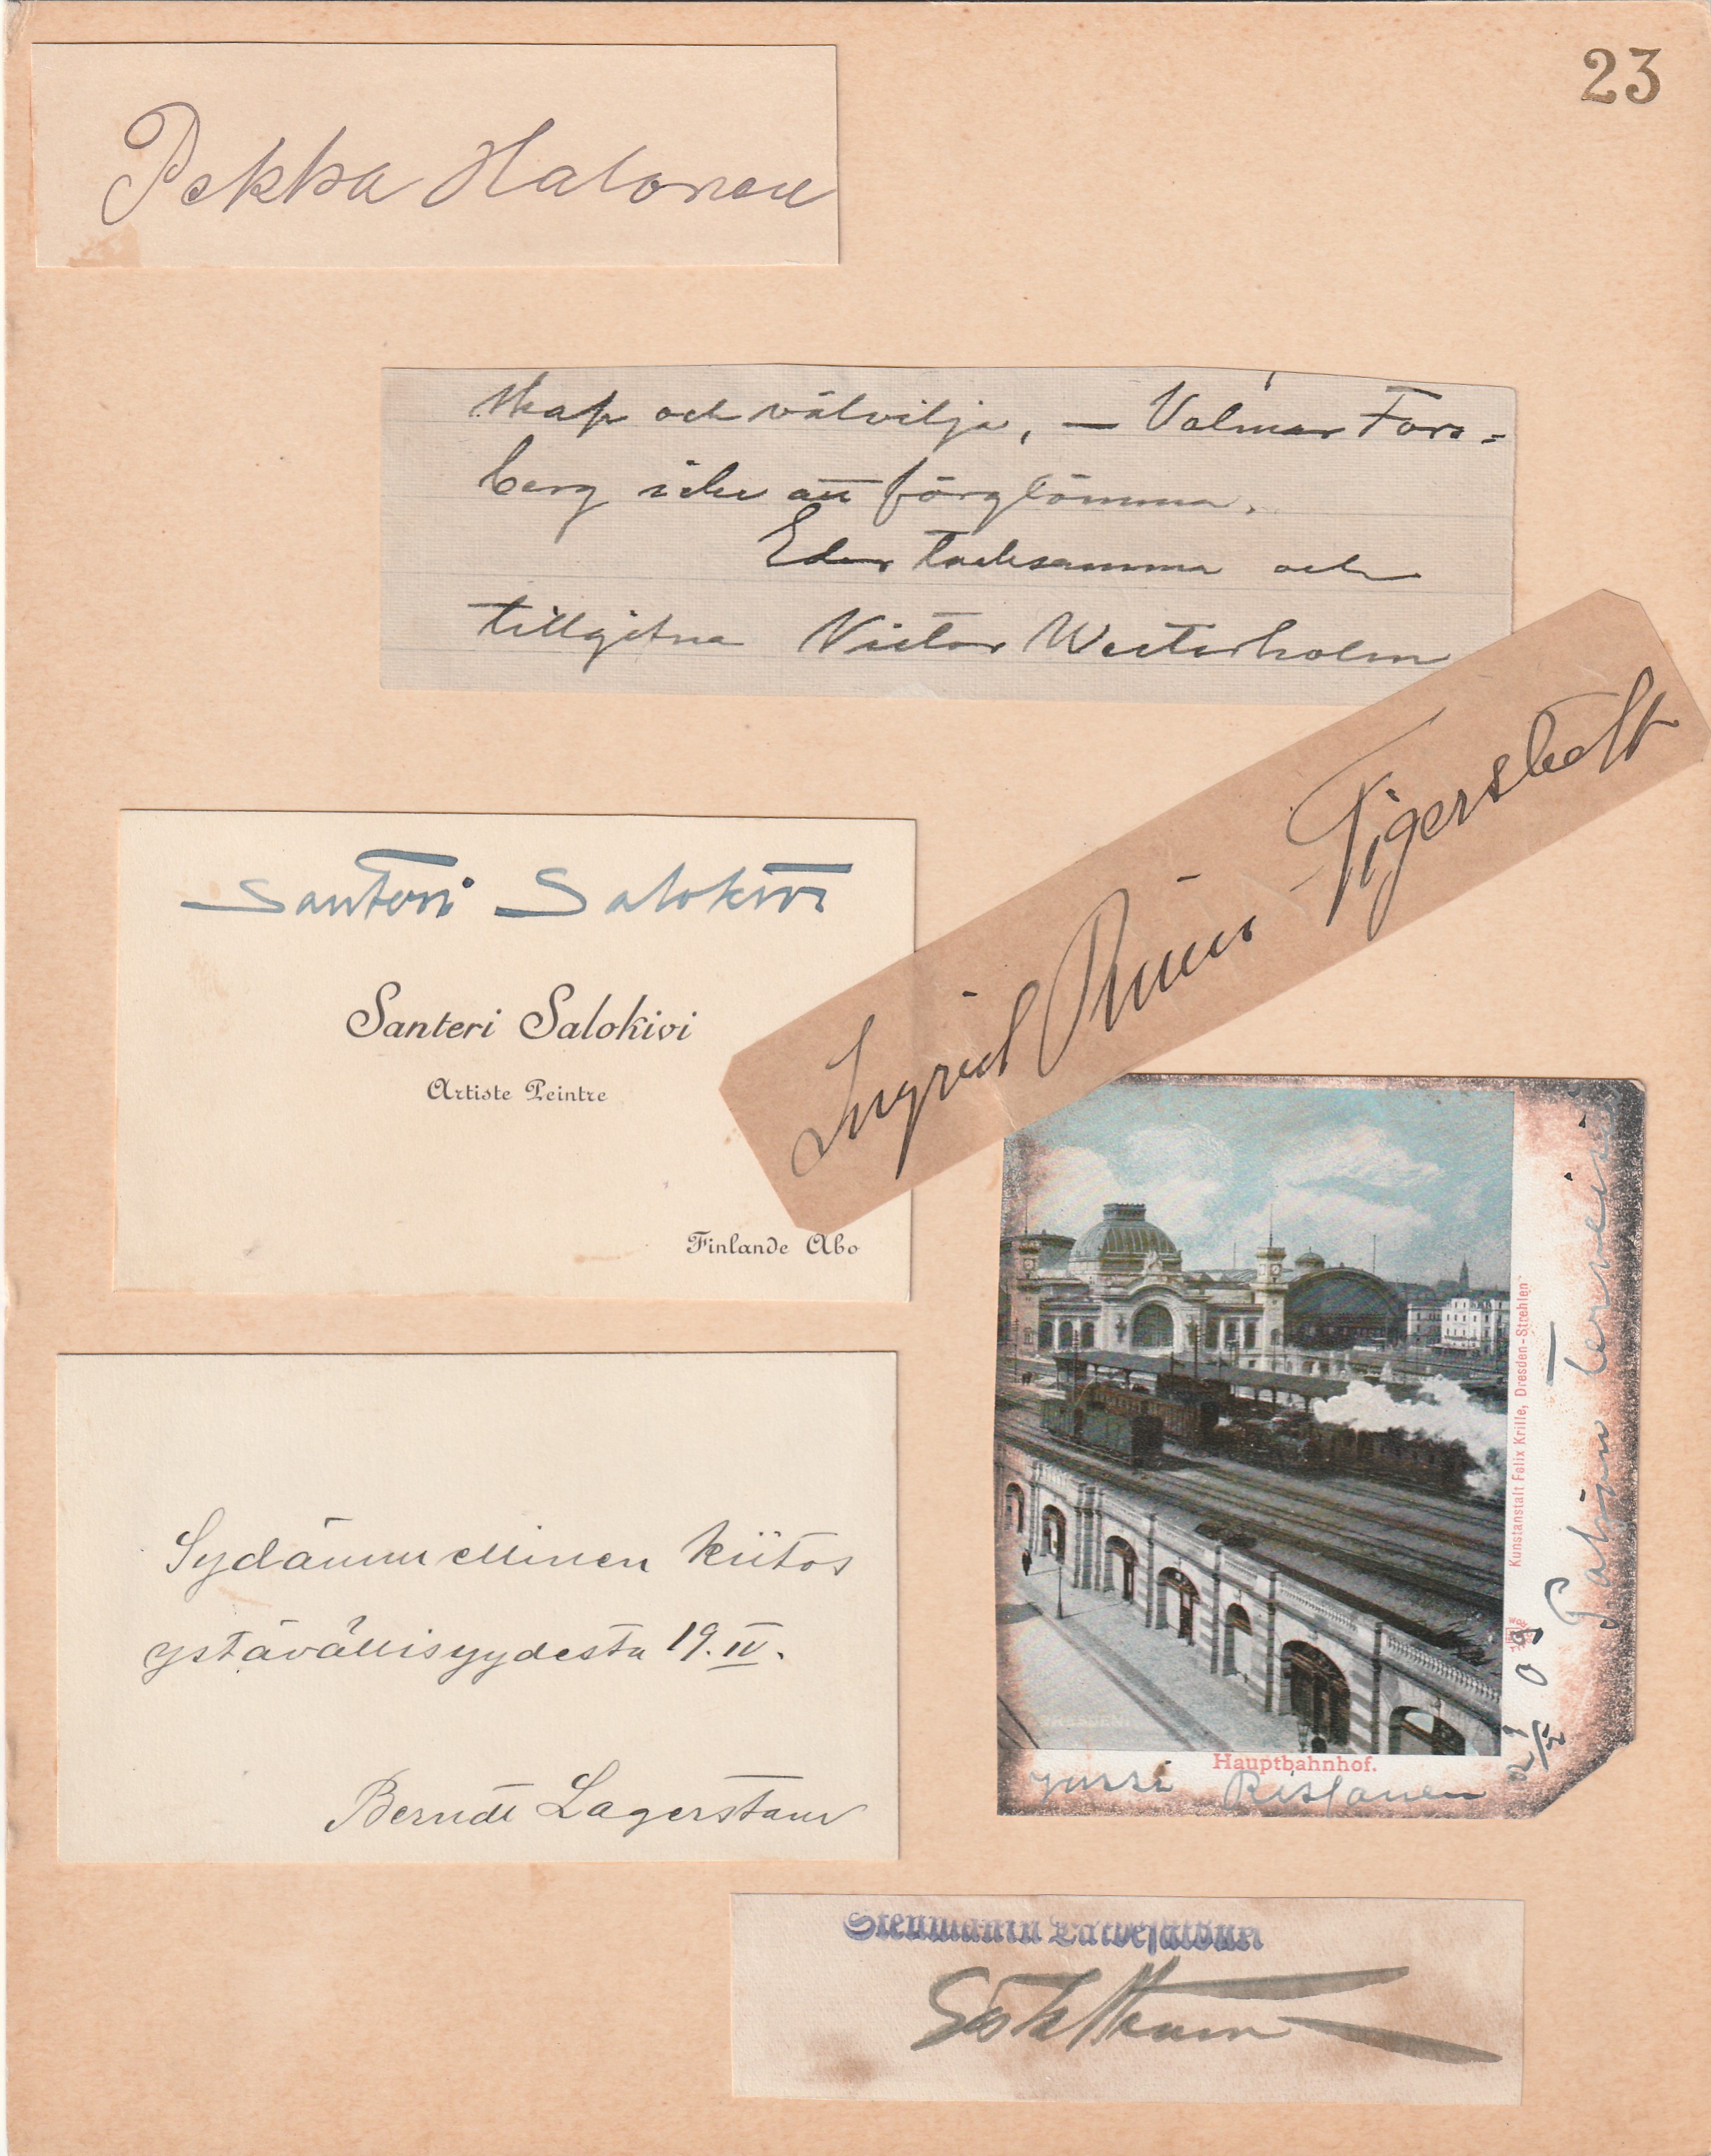 23
Pekka Halonen
skap och välvilja, — Valmar Fors=
berg icke att förglömma.
Eder tacksamma och
tillgifna Victor Westerholm
Ingrid Ruin Tigerstedt
Santeri Salokivi
Santeri Salokivi
Artiste Peintre
Finlande Abo
Sydämmellinen kiitos
ystävällisyydestä 19. IV.
Berndt Lagerstam
Kunstanstalt Felix Krille, Dresden-Strehlen
09
Hauptbahnhof.
Jussi Rissanen
Stenmanin Taidesalonki